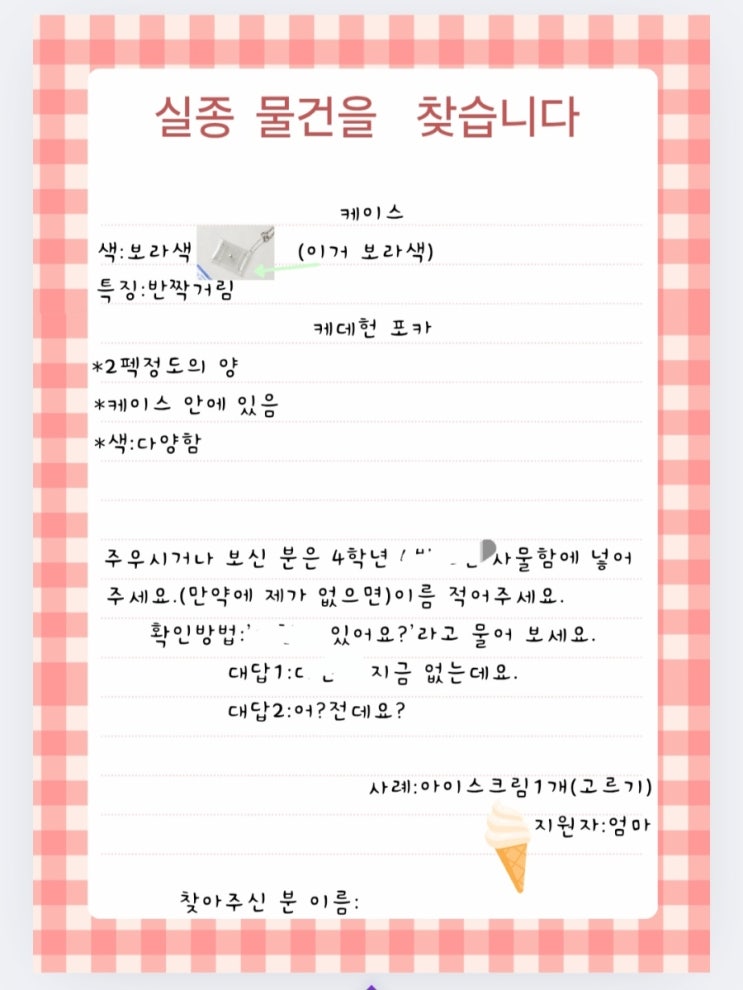 실종 물건을 찾습니다
케이스
색:보라색 (이거 보라색)
특징:반짝거림
케데헌 포카
*2펙정도의 양
*케이스 안에 있음
*색:다양함
주우시거나 보신 분은 4학년 사물함에 넣어
주세요.(만약에 제가 없으면)이름 적어주세요.
확인방법:' 있어요?'라고 물어 보세요.
대답1: 지금 없는데요.
대답2:어?전데요?
사례:아이스크림1개(고르기)
지원자:엄마
찾아주신 분 이름: